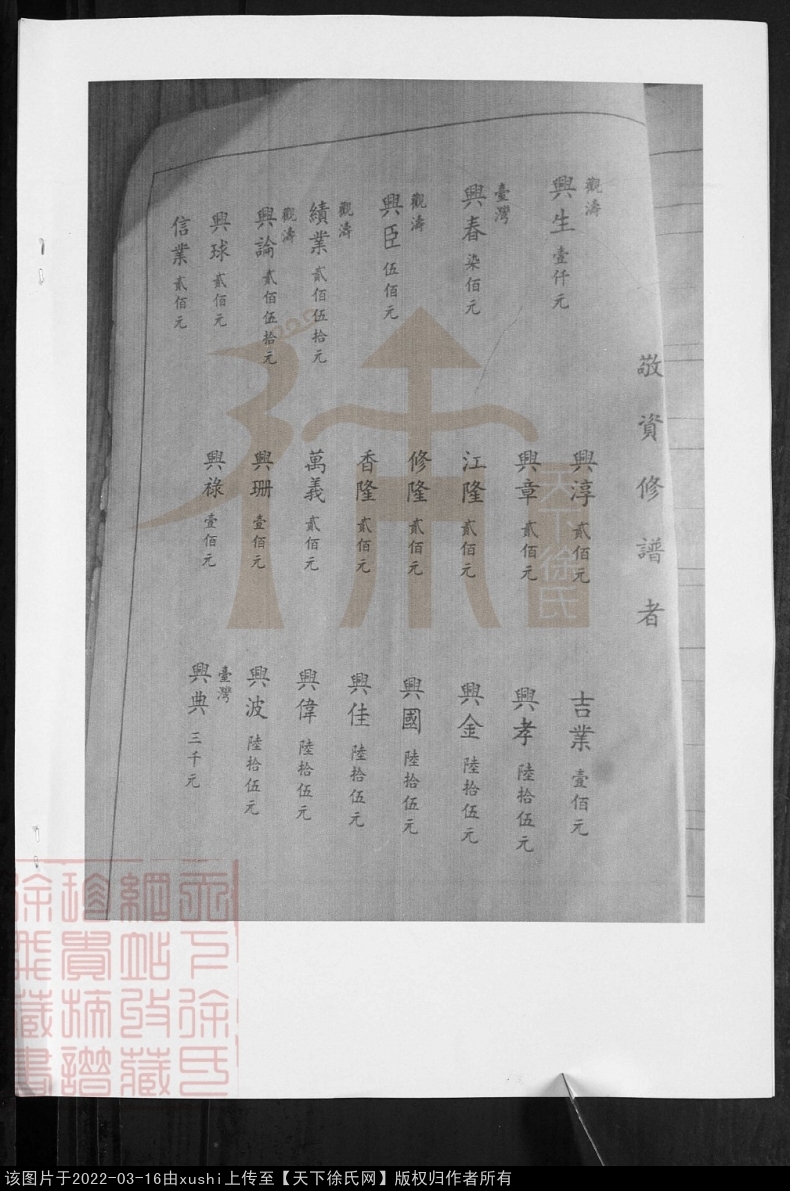 敬資修譜者
觀濤
興生 壹仟元
臺灣
興春 柒佰元
觀濤
興臣 伍佰元
觀濤
績業 貳佰伍拾元
觀濤
興論 貳佰伍拾元
興球 貳佰元
信業 貳佰元
興淳 貳佰元
興章 貳佰元
江隆 貳佰元
修隆 貳佰元
香隆 貳佰元
萬義 貳佰元
興珊 壹佰元
興祿 壹佰元
吉業 壹佰元
興孝 陸拾伍元
興金 陸拾伍元
興國 陸拾伍元
興佳 陸拾伍元
興偉 陸拾伍元
興波 陸拾伍元
臺灣
興典 三千元
天下徐氏
天下徐氏
網站收藏
珍貴族譜
徐氏藏書
该图片于2022-03-16由xushi上传至【天下徐氏网】版权归作者所有